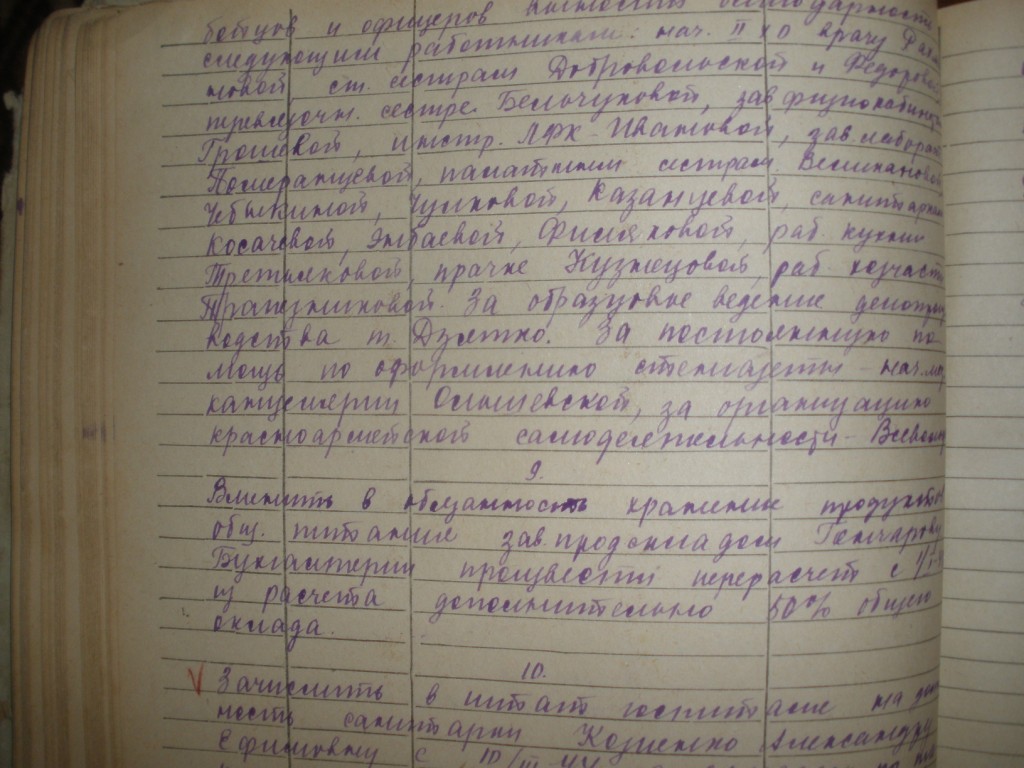 бойцов и офицеров выносить благодарность
следующим работникам: нач. II х о врачу
новой, ст. сестрам Добровольской и Федоровой
перевязочн. сестре Бельчуковой, зав физиокабинет
Грошевой, инстр. ЛФК - Ивановой, зав. лаборат
Померанцевой, палатным сестрам Великановой
Чебыкиной, Чулковой, Казанцевой, санитаркам
Косачевой, Экбаевой, Филяковой, раб. кухни
Третьяковой, прачке Кузнецовой, раб. хозчасти
Трапезниковой. За образцовое ведение делопроиз
водства т. Дзятко. За постоянную по
мощь по оформлению стенгазеты - нач.
канцелярии Ольшевской, за организацию
красноармейской самодеятельности -
9.
Вменить в обязанность хранение продуктов
общ. питание зав. продскладом Гончарову
Бухгалтерии произвести перерасчет с
из расчета дополнительно 50% общего
оклада.
10.
V Зачислить в штат госпиталя на дол
ность санитарки Козленко Александру
Ефимовну с 10/III-44